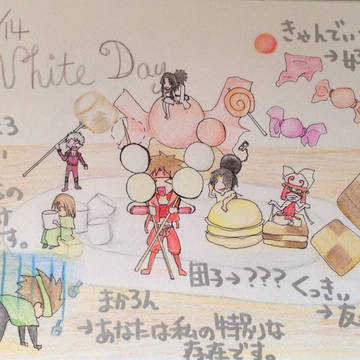 /14
White Day
きゃんでぃ
→好
団子→???
くっきぃ
→友
まかろん
→あなたは私の特別な
存在です。